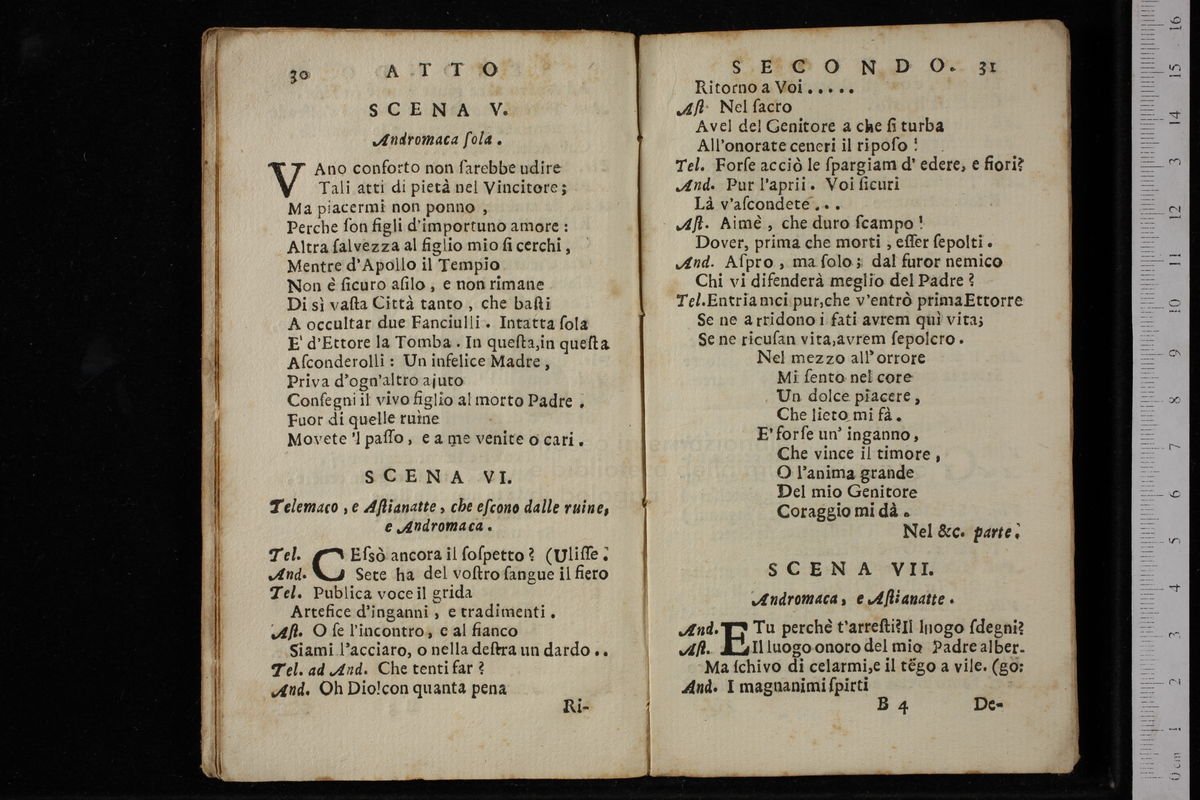 30 ATTO
SCENA V.
Andromaca ſola.
VAno conforto non ſarebbe udire
Tali atti di pietà nel Vincitore;
Ma piacermi non ponno,
Perche ſon figli d'importuno amore:
Altra ſalvezza al figlio mio ſi cerchi,
Mentre d'Apollo il Tempio
Non è ſicuro aſilo, e non rimane
Di sì vaſta Città tanto, che baſti
A occultar due Fanciulli. Intatta ſola
E' d'Ettore la Tomba. In queſta, in queſta
Aſconderolli: Un infelice Madre,
Priva d'ogn'altro ajuto
Conſegni il vivo figlio al morto Padre.
Fuor di quelle ruine
Movete 'l paſſo, e a me venite o cari.
SCENA VI.
Telemaco, e Aſtianatte, che eſcono dalle ruine,
e Andromaca.
Tel. CEſsò ancora il ſoſpetto? (Uliſſe.
And. Sete ha del voſtro ſangue il fiero
Tel. Publica voce il grida
Artefice d'inganni, e tradimenti.
Aſt. O ſe l'incontro, e al fianco
Siami l'acciaro, o nella deſtra un dardo..
Tel. ad And. Che tenti far?
And. Oh Dio! con quanta pena
Ri-
SECONDO. 31
Ritorno a Voi.....
Aſt. Nel ſacro
Avel del Genitore a che ſi turba
All'onorate ceneri il ripoſo!
Tel. Forſe acciò le ſpargiam d'edere, e fiori?
And. Pur l'aprii. Voi ſicuri
Là v'aſcondete...
Aſt. Aimè, che duro ſcampo!
Dover, prima che morti, eſſer ſepolti.
And. Aſpro, ma ſolo; dal furor nemico
Chi vi difenderà meglio del Padre?
Tel. Entriamci pur, che v'entrò prima Ettorre
Se ne arridono i fati avrem quì vita;
Se ne ricuſan vita, avrem ſepolcro.
Nel mezzo all'orrore
Mi ſento nel core
Un dolce piacere,
Che lieto mi fà.
E' forſe un' inganno,
Che vince il timore,
O l'anima grande
Del mio Genitore
Coraggio mi dà.
Nel &c. parte.
SCENA VII.
Andromaca, e Aſtianatte.
And. E Tu perchè t'arreſti? Il luogo ſdegni?
Aſt. Il luogo onoro del mio Padre alber-
Ma ſchivo di celarmi, e il tẽgo a vile. (go:
And. I magnanimi ſpirti
B 4 De-